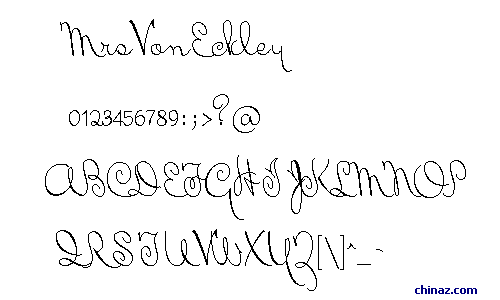 MrsVonEckley
0123456789:;>?@
ABCDEFGHIJKLMNOP
QRSTUVWXYZ[\]^_`
chinaz.com